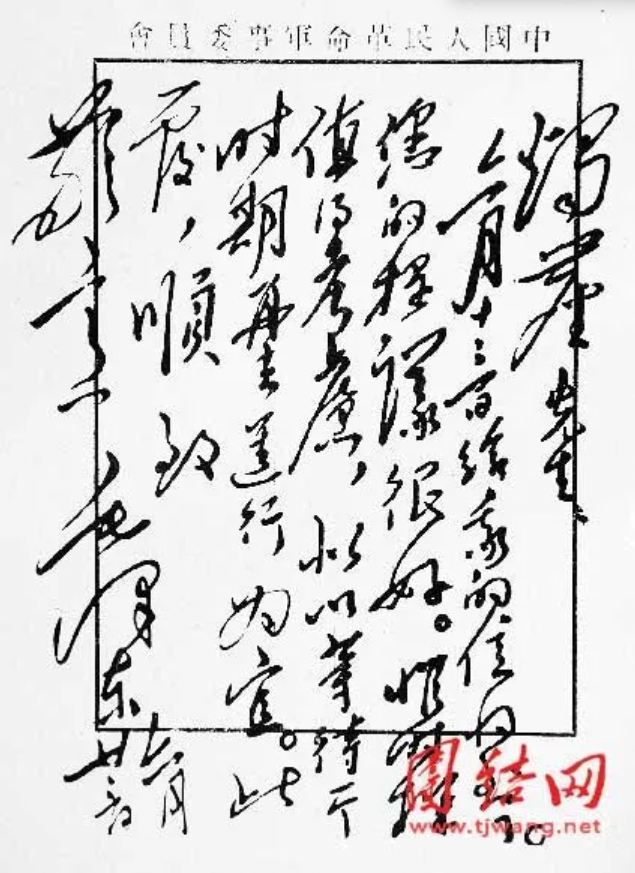 中國人民革命軍事委員會
燭塵先生：
六月十三日給我的信收到了。
您的提議很好。惟時機
值得考慮，似以等待一
时期再去進行为宜。此
覆，順致
敬意！
毛澤東
六月
團結网
www.tjwang.net